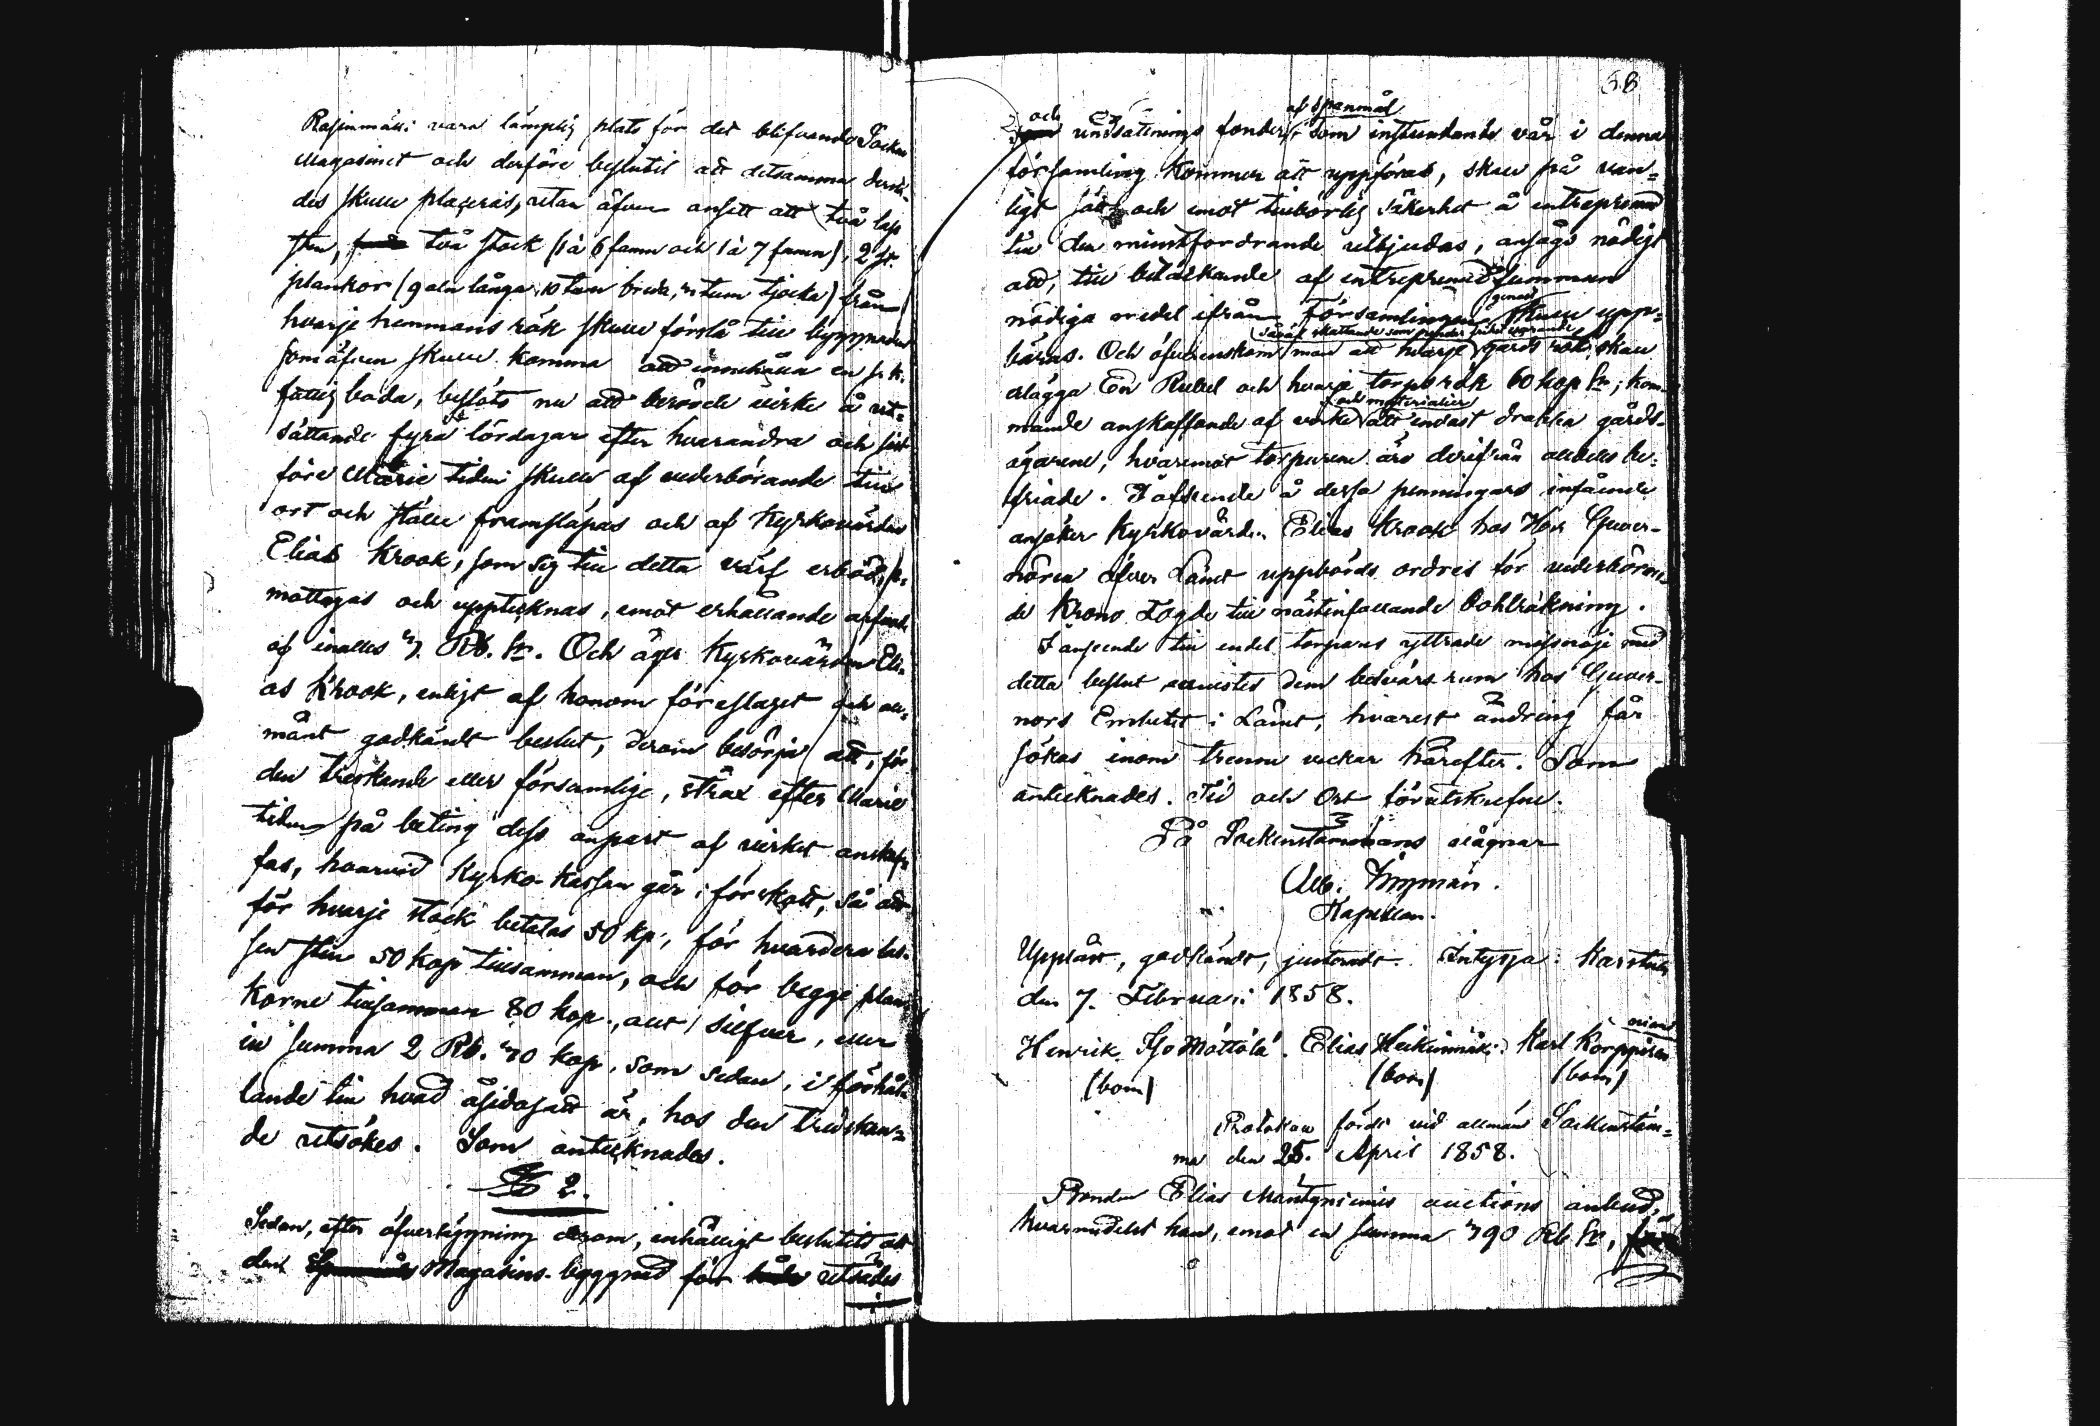 Rasinmäki vara lämplig plats för det blifvande Socken
Magasinet och derföre beslutit att detsamma derstä-
des skulle placeras, utan äfven ansett att två lass
sten, två stock (1 à 6 famn och 1 à 7 famn), 2 st.
plankor (9 aln långa, 10 tum breda, 2 tum tjocka) från
hvarje hemmans rök skulle förslå till byggnaden
som äfven skulle komma att innehålla en s. k.
fattig boda, beslöts nu att berörde virke å ut-
sättande fyra lördagar efter hvarandra och sist
före Marie tiden skulle af vederbörande till
ort och ställe framsläpas och af Kyrkovärden
Elias Krook, som sig till detta värf erböd,
mottagas och uppteknas, emot erhållande
af inalles 7. Rb. Sr. Och äger Kyrkovärden Eli-
as Krook, enligt af honom föreslaget och all-
mänt godkändt beslut, derom besörja att, för
den tredskande eller försumlige, strax efter Marie
tiden på beting dess anpart af virket anskaf-
fas, hvarvid Kyrko-kassan går i förskott, så att
för hvarje stock betalas 50 kp., för hvardera las-
sen sten 50 kop tillsamman, och för begge plan-
korne tillsamman 80 kop., allt i silfver, eller
in summa 2 Rb. 70 kop. som sedan, i förhål-
lande till hvad åsidosatt är, hos den tredskan-
de utsökes. Som antecknades.
§ 2.
Sedan, efter öfverläggning derom, enhälligt beslutits att
den Magasins-byggnad för utsädes
58
och undsättnings fonder, af spanmål som instundande vår i denna
församling kommer att uppföras, skall på van-
ligt sätt och emot tillbörlig säkerhet å entreprenad
till den minstfordrande utbjudas, ansågs nödigt
att, till betäckande af entreprenad summan
nödiga medel ifrån Församlingen genast skulle upp-
bäras. Och öfverenskom man att hvarje gårds rök, skall
erlägga En Rubel och hvarje torpo rök 60 kop Sr; kom-
mande anskaffande af virke och materialier att endast drabba gårds-
ägarene, hvaremot torparene äro derifrån alldeles be-
friade. I afseende å dessa penningars infående
ansöker Kyrkovärden Elias Krook hos Herr Guver-
nören öfver Länet uppbörds ordres för vederböran-
de Krono Fogde till nästinfallande Bohlräkning.
I anseende till endel torpares yttrade missnöje med
detta beslut, anvistes dem besvärs rum hos Guver-
nors Embetet i Länet, hvarest ändring får
sökas inom trenne veckor härefter. Som
antecknades. Tid och Ort förutskrefne.
På Sockenstämmans vägnar
Alb.
Kapellan.
Uppläst, godkändt, justeradt. Intyga: Karstula
den 7. Februari 1858.
Henrik Iso Möttölä. Elias Heikinmäki. Karl Korppinen
(bom) (bom) (bom)
Protokoll fördt vid allmän Sockenstäm-
ma den 25. April 1858.
Bonden Elias Mäntyniemis auctions anbud,
hvarmedelst han, emot en summa 790 Rb Sr,